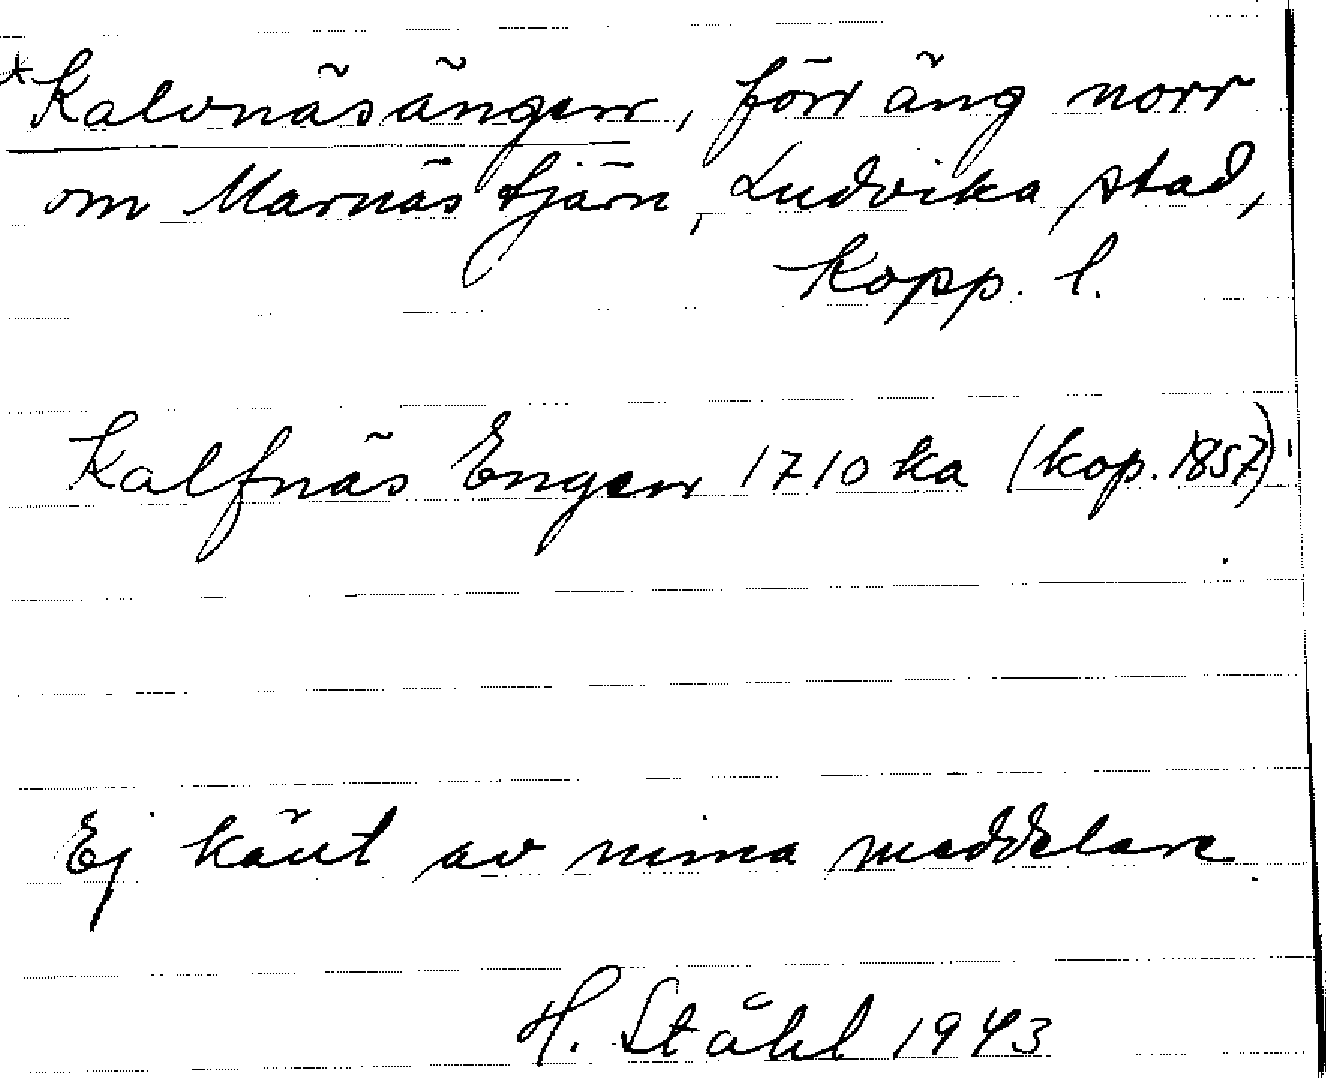 *Kalvnäsängen, förr äng norr
om Marnästjärn, Ludvika stad,
Kopp. l.
Kalfnäs Engen 1710 ka (kop. 1857)
Ej känt av mina meddelare.
H. Ståhl 1943